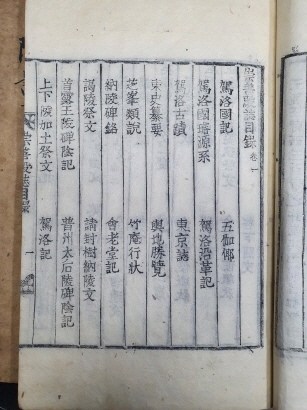 崇善殿誌目錄 卷一
駕洛國記 五伽倻
駕洛國璿源系 駕洛沿革記
駕洛古蹟 東京誌
東史纂要 輿地勝覽
芝峯類說 竹庵行狀
納陵碑銘 會老堂記
謁陵祭文 請封樹納陵文
首露王陵碑陰記 普州太后陵碑陰記
上下陵加土祭文 駕洛記
目錄 一